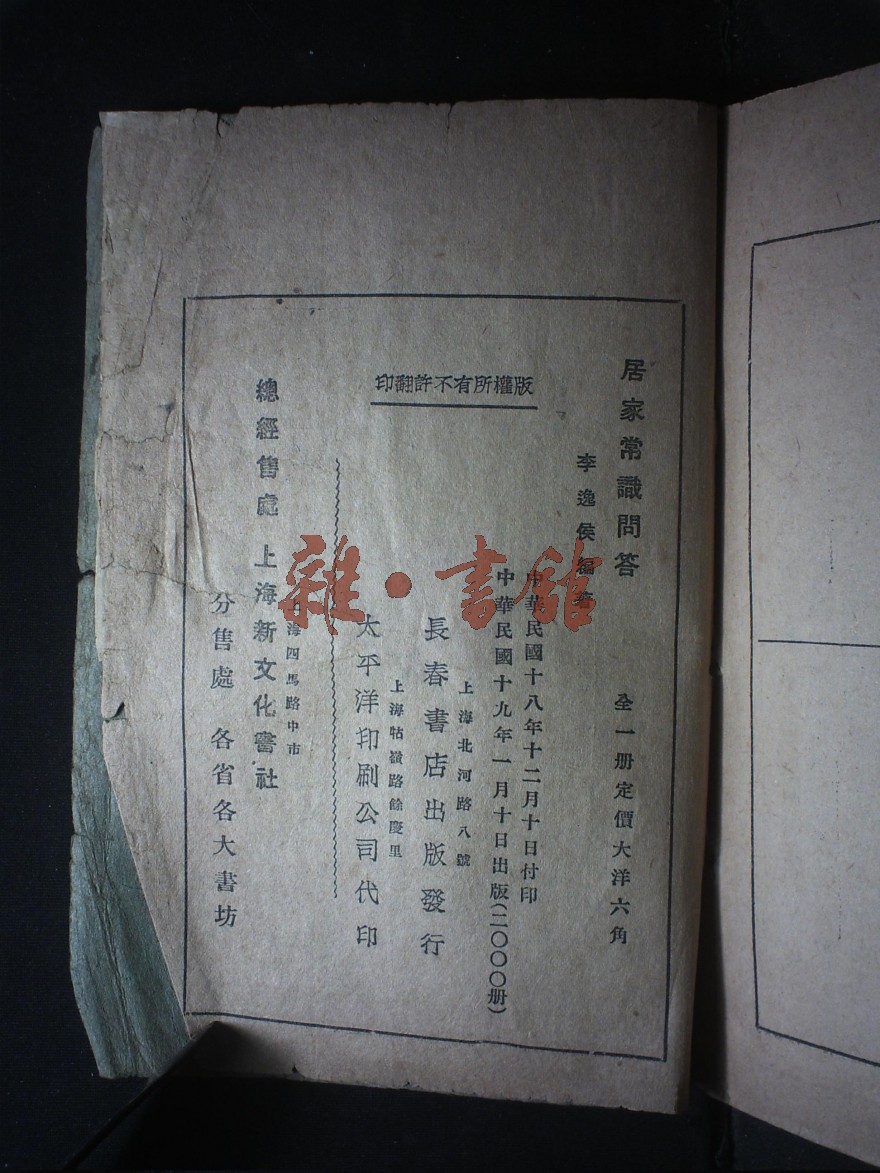 居家常識問答
全一册定價大洋六角
李逸侯編著
中華民國十八年十二月十日付印
中華民國十九年一月十日出版(二〇〇〇册)
版權所有不許翻印
上海北河路八號
長春書店出版發行
上海牯嶺路餘慶里
太平洋印刷公司代印
上海四馬路中市
總經售處 上海新文化書社
分售處 各省各大書坊
雜·書館